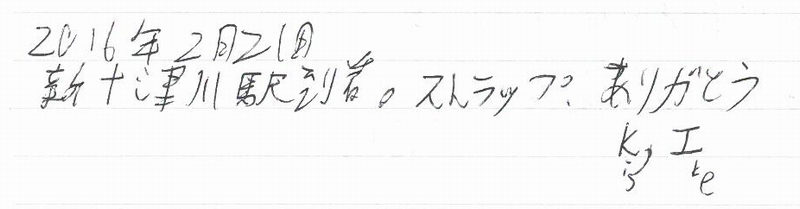 2016年2月21日
新十津川駅到着。ストラップ、ありがとう
K, I